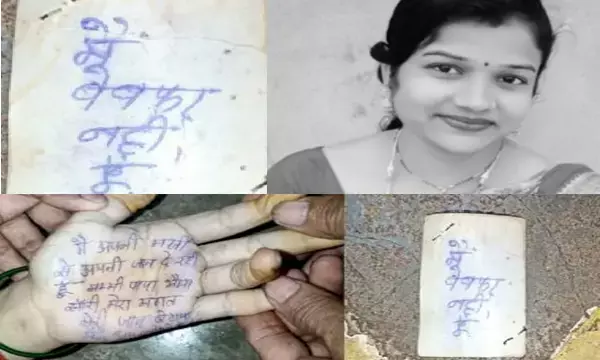 मैं
वेवफा
नहीं
हूं
मै अपनी मर्जी
से अपनी जान दे रही
हूं मम्मी पापा भैया
सॉरी मेरा
मेरी जान
मैं
वेवफा
नहीं
हूं